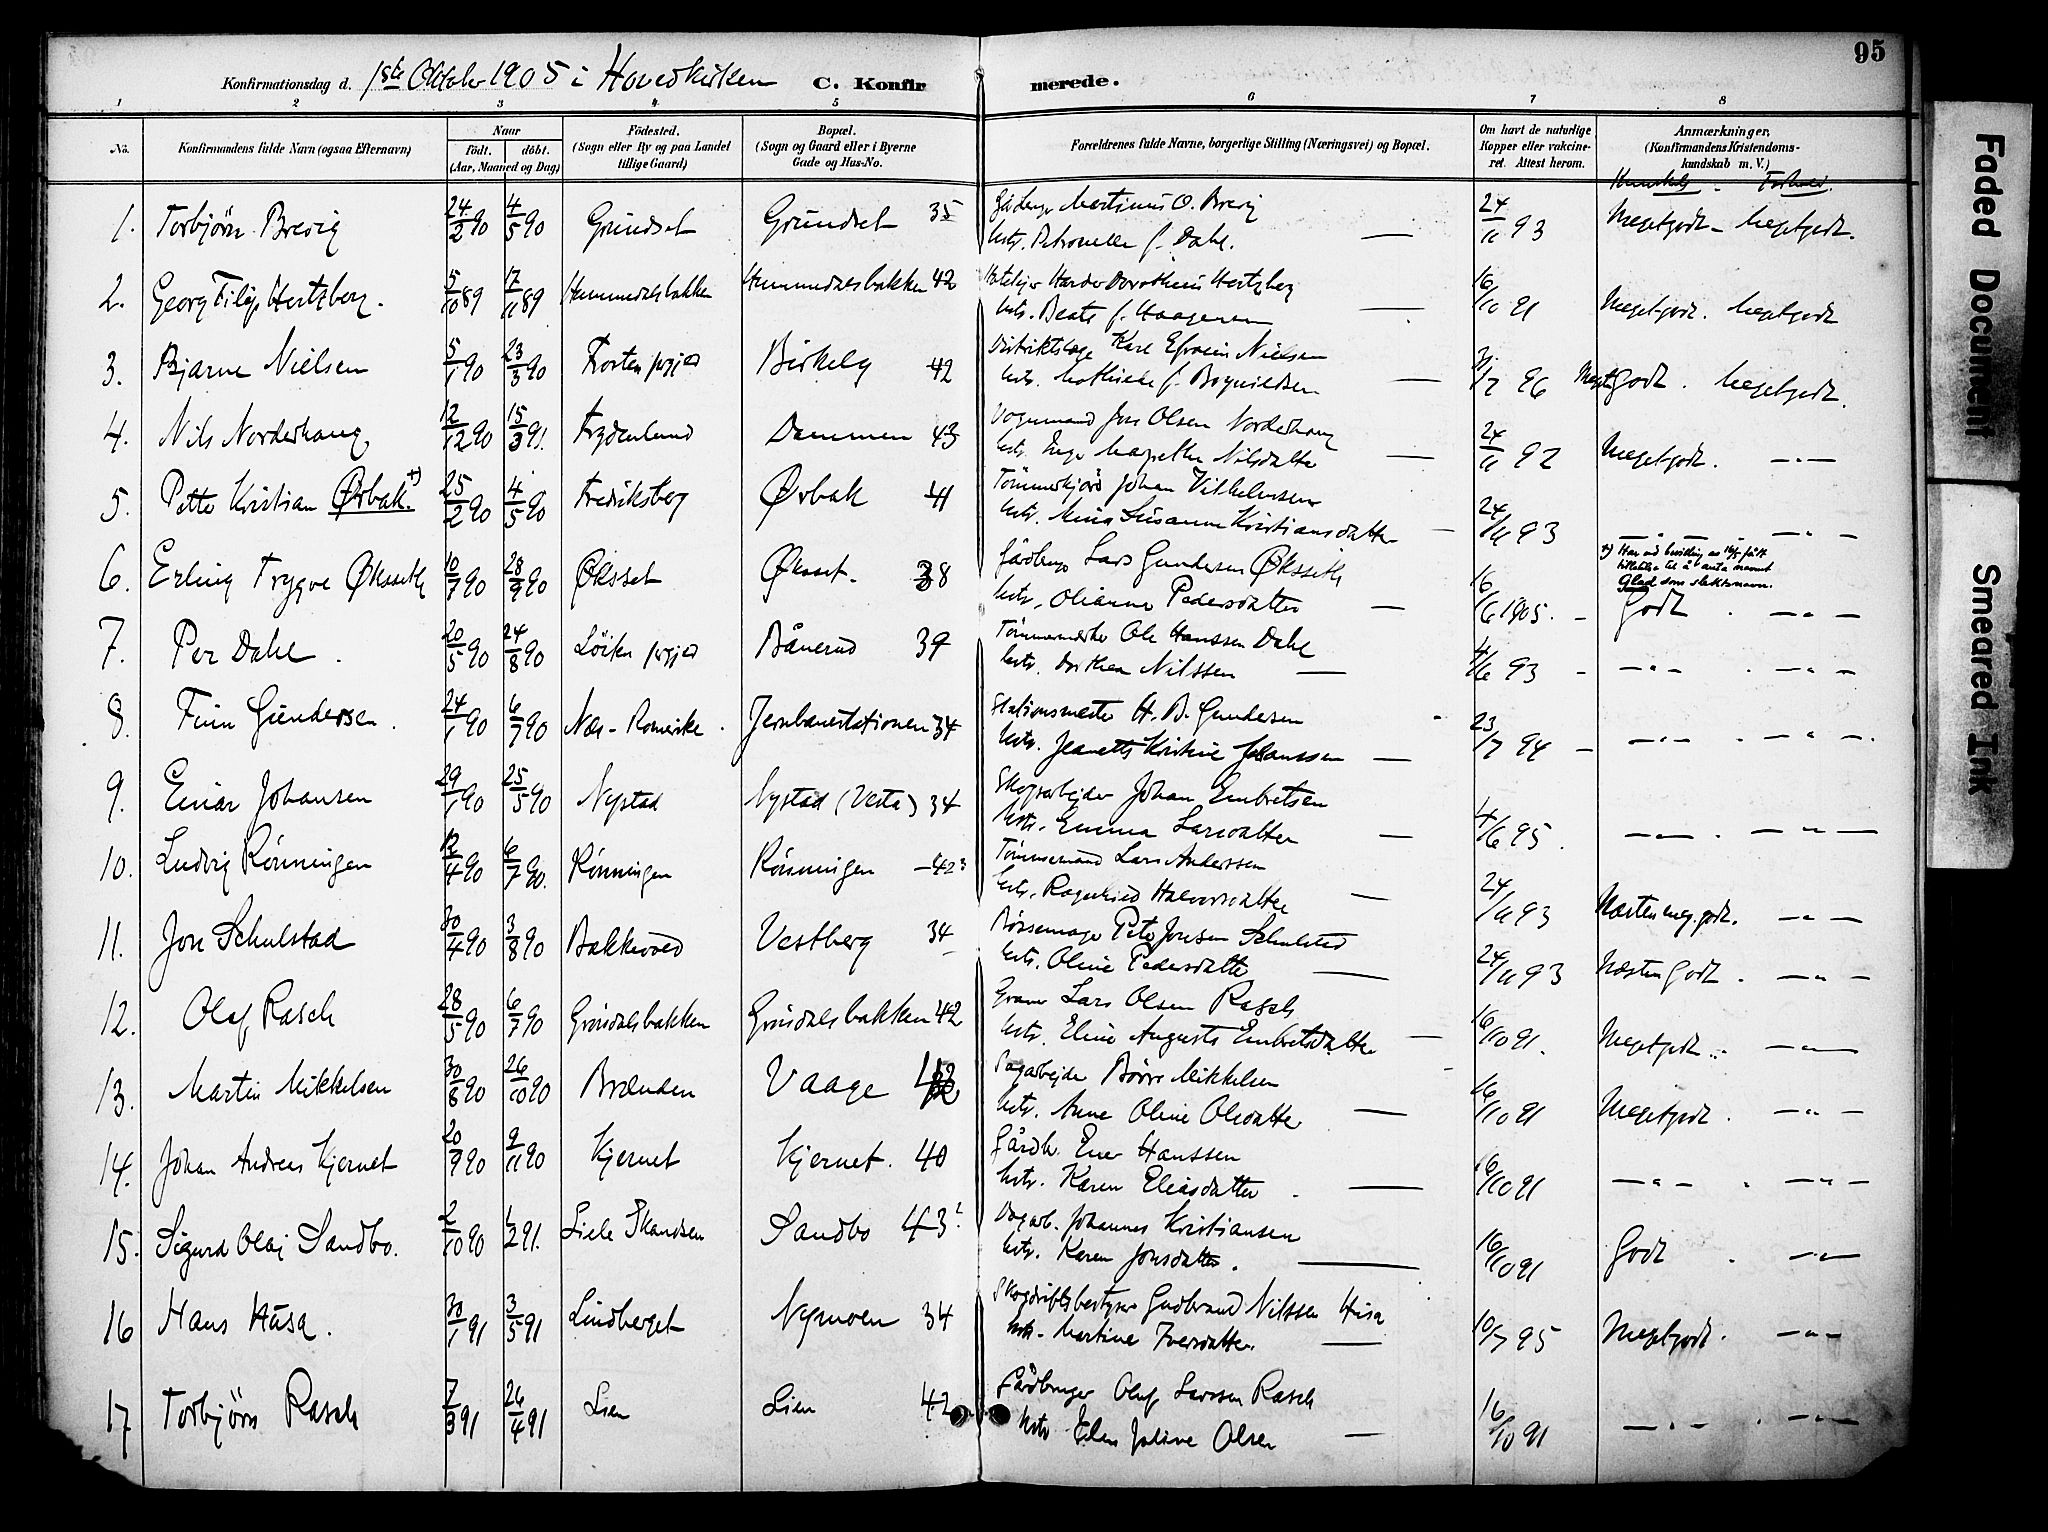 95
Konfirmationsdag d. 1ste Oktober 1905 i Hovedkirken C. Konfirmerede.
1 2 3 4 5 6 7 8
No. Konfirmandens fulde Navn (ogsaa Efternavn) Naar født. døbt. (Aar, Maaned og Dag) Fødested. (Sogn eller By og paa Landet tillige Gaard) Bopæl. (Sogn og Gaard eller i Byerne Gade og Hus-No. Forældrenes fulde Navne, borgerlige Stilling (Næringsvei) og Bopæl. Om havt de naturlige Kopper eller vakcineret. Attest herom. Anmærkninger, (Konfirmandens Kristendomskundskab m. V.)
Kundskab - Forhold.
1. Torbjörn Brevig 24/2 90 4/5 90 Grundset Grundset 35 Martinus O. Brevig
Hstr. Petronelle f. Dahl. — 24/11 93 Megetgodt - Megetgodt.
2. Georg Filip Hertzberg. 5/10 89 17/11 89 Hummedalsbakken Hummedalsbakken 42 Harder Dorotheus Hertzberg
Hstr. Beate f. Haagensen — 16/10 91 Megetgodt. Megetgodt
3. Bjarne Nielsen 5/1 90 23/3 90 Trosten prgjld Birkely 42 Distriktslæge Karl Efraim Nielsen
Hstr. Mathilde f. Bognildsen — 31/7 96 Meget Godt. Megetgodt.
4. Nils Norderhaug 12/12 90 15/3 91. Frydenlund Dammen 43 Vognmand Jon Olsen Norderhaug
Hstr. Inger Magrethe Nilsdatter — 24/11 92 Megetgodt. — " —
5. Petter Kristian Ørbak. +) 25/2 90 4/5 90 Fredriksberg Ørbak 41 Tömmerkjörer Johan Vilhelmsen
Hstr. Mina Susanne Kristiansdatter — 24/11 93 — " — — " —
+) Har ved bevilling av 16/5 fått
tillatelse til å anta navnet
Glad som slektsnavn.
6. Erling Trygve Økseth 10/7 90 28/9 90 Øksset Øksset. 38 Gårdbrug. Lars Gundersen Økseth
Hstr. Oliane Pedersdatter — 16/6 1905. - Godt . — " —
7. Per Dahl. 20/5 90 24/8 90 Löiten prgjld Bånerud 39 Tömmermerker Ole Hanssen Dahl
Hstr. Dorthea Nilssen — 4/6 93 - — " — . — " —
8. Finn Gundersen. 24/1 90 6/7 90 Næs - Romerike. Jernbanestationen 34 Stationsmester H. B. Gundersen
Hstr. Jeanette Kristine Johanssen — 23/7 94 - — " — . — " —.
9. Einar Johansen 29/1 90 25/5 90 Nystad Nystad (Vesta) 34 Skogsarbeider Johan Embretsen
Hstr. Emma Larsdatter — 4/6 95. — " — . — " —
10. Ludvig Rönningen 12/4 90 6/7 90. Rönningen Rönningen - 42 Tömmermand Lars Anderssen
Hstr. Ragnhild Halvorsdatter — 24/11 93 Næsten meg. godt. — " —
11. Jon Schulstad 30/4 90 3/8 90 Bakkevold Vestberg 34 Børsemager Peter Jonsen Schulstad
Hstr. Oline Pedersdatter — 24/11 93 Næsten Godt . — " —
12. Olaf Rasch 28/5 90 6/7 90 Grönsdalsbakken Grönsdalsbakken 42 Graver Lars Olsen Rasch
Hstr. Eline Augusta Embretsdatter — 16/10 91. Megetgodt. — " —
13. Martin Mikkelsen 30/8 90 26/10 90 Brænden Vaage 42 Sagarbejder Börre Mikkelsen
Hstr. Anne Oline Olsdatter — 16/10 91 Megetgodt. — " —
14. Johan Andreas Kjernet 20/9 90 9/11 90 Kjernet Kjernet. 40 Gårdb. Ener Hanssen
Hstr. Karen Eliasdatter. — 16/10 91 — " — . — " —
15. Sigurd Olaj Sandbo. 2/10 90 1/2 91. Lille Skandsen Sandbo 43 Dagarb. Johannes Kristiansen
Hstr. Karen Jonsdatter. — 16/10 91 Godt . — " —
16 Hans Husa. 30/1 91 3/5 91 Lindberget Nymoen 34 Skogdriftsbestyrer Gudbrand Nilssen Husa
Hstr. Martine Iversdatter. — 10/7 95 Megetgodt. — " —
17 Torbjörn Rasch 7/3 91 26/4 91 Lien Lien 42 Gårdbruger Oluf Larssen Rasch
Hstr Elen Joline Olsen — 16/10 91 — " — . — " —
Faded Document
Smeared Ink